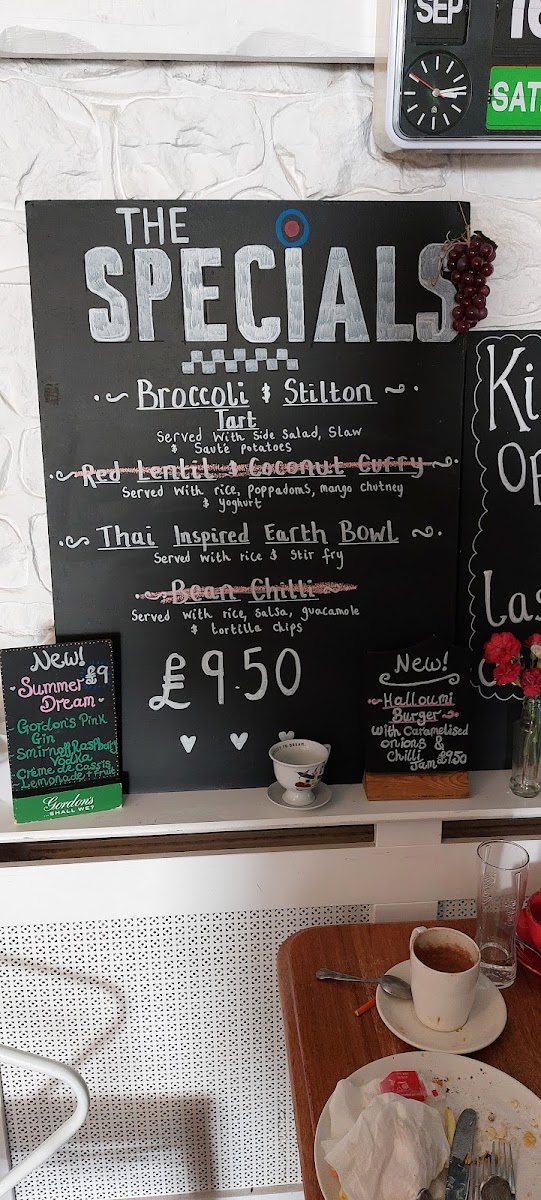 SEP
SAT
THE
SPECIALS
BROCCOLI & STILTON
Tart
Served with side salad, slaw
& sauté potatoes
Red Lentil & Coconut Curry
Served with rice, poppadoms, mango chutney
& yoghurt
Thai Inspired Earth Bowl
Served with rice & stir fry
Bean Chilli
Served with rice, salsa, guacamole
& tortilla chips
£9.50
New!
£9
Summer
Dream
Gordon's Pink
Gin
Smirnoff Raspberry
Vodka
Crème de Cassis
Lemonade + Fruit
Gordon's
SHALL WE?
New!
Halloumi
Burger
With Caramelised
onions &
Chilli
Jam £9.50
Ki
OP
las